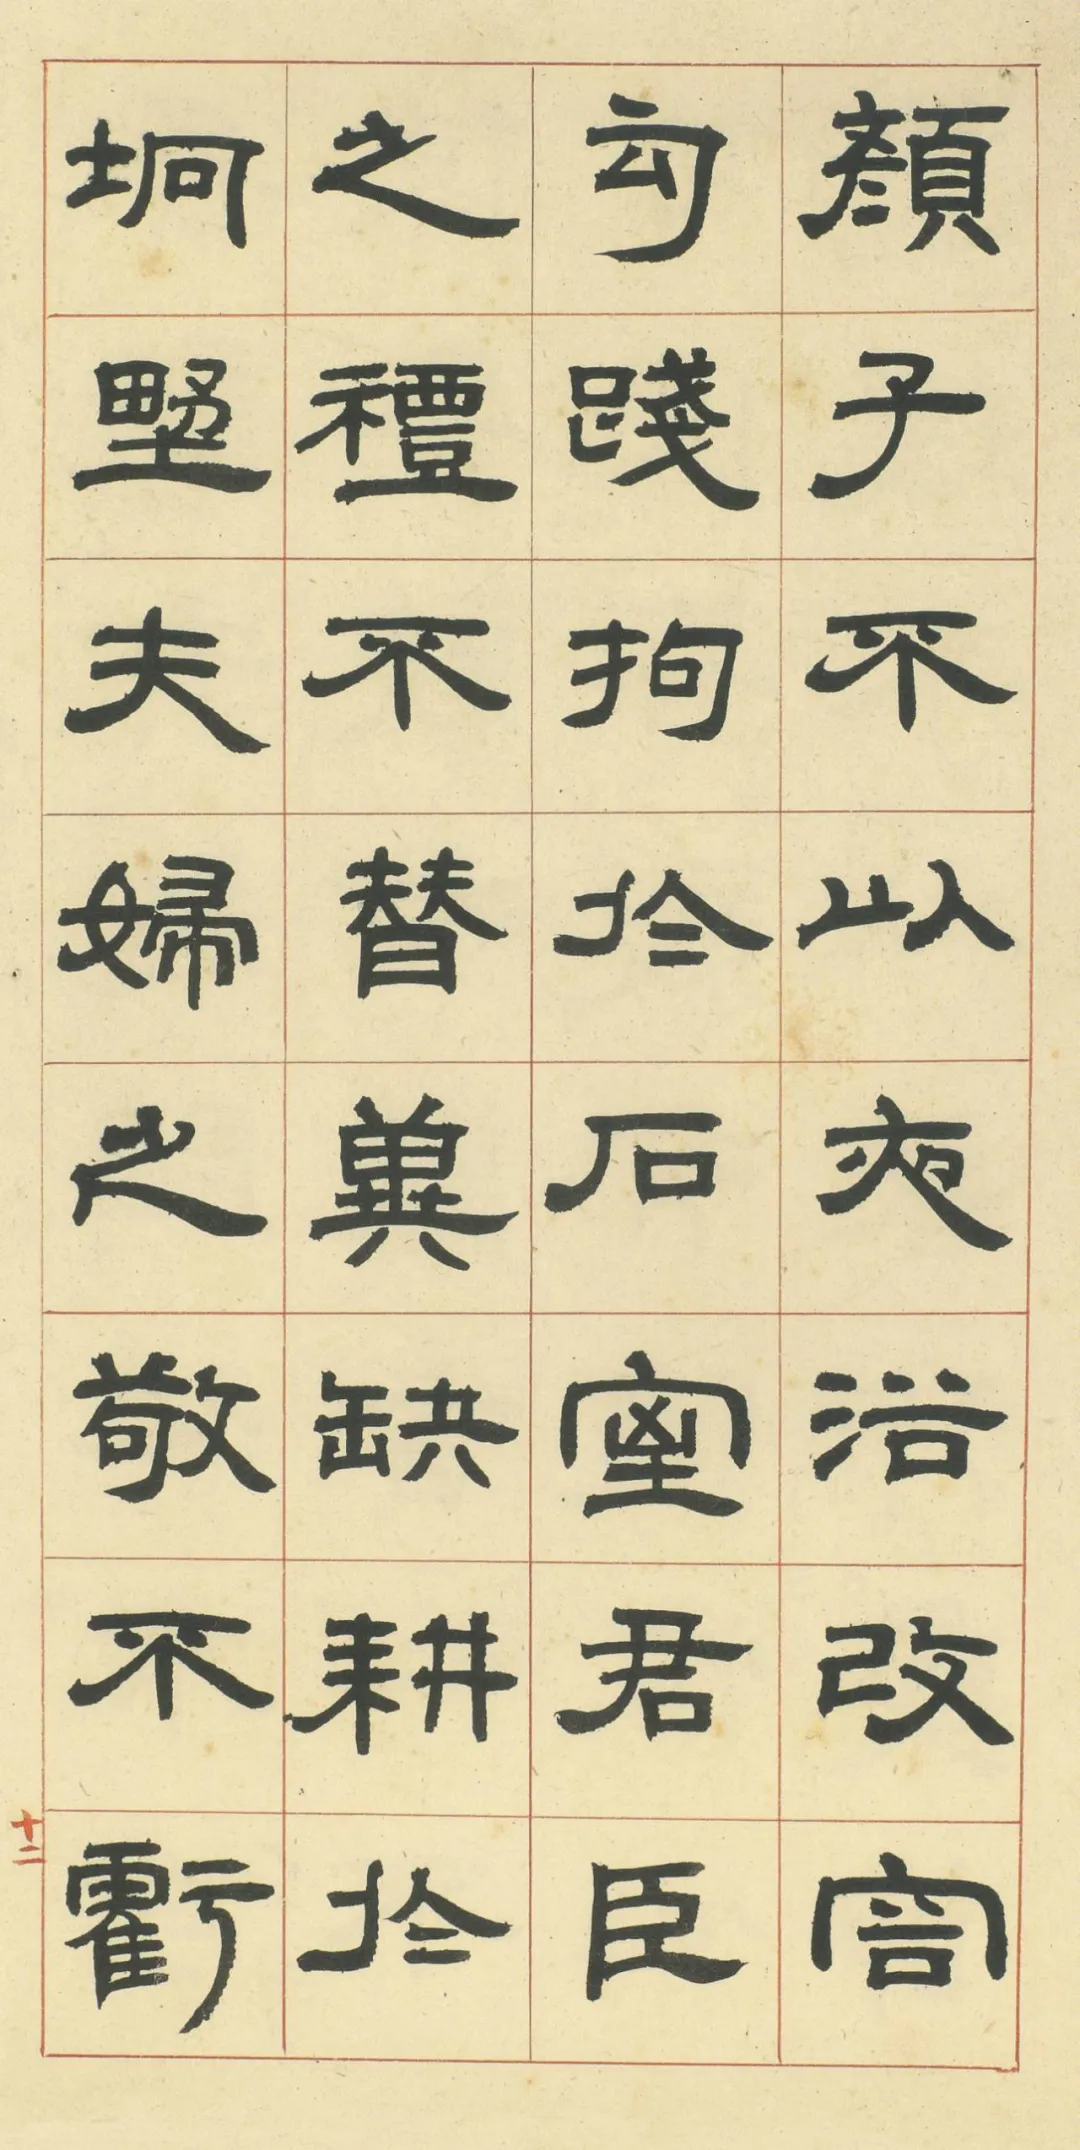 顔子不以夜浴改容
勾踐拘於石室君臣
之禮不替冀缺耕於
坰野夫婦之敬不虧
十二